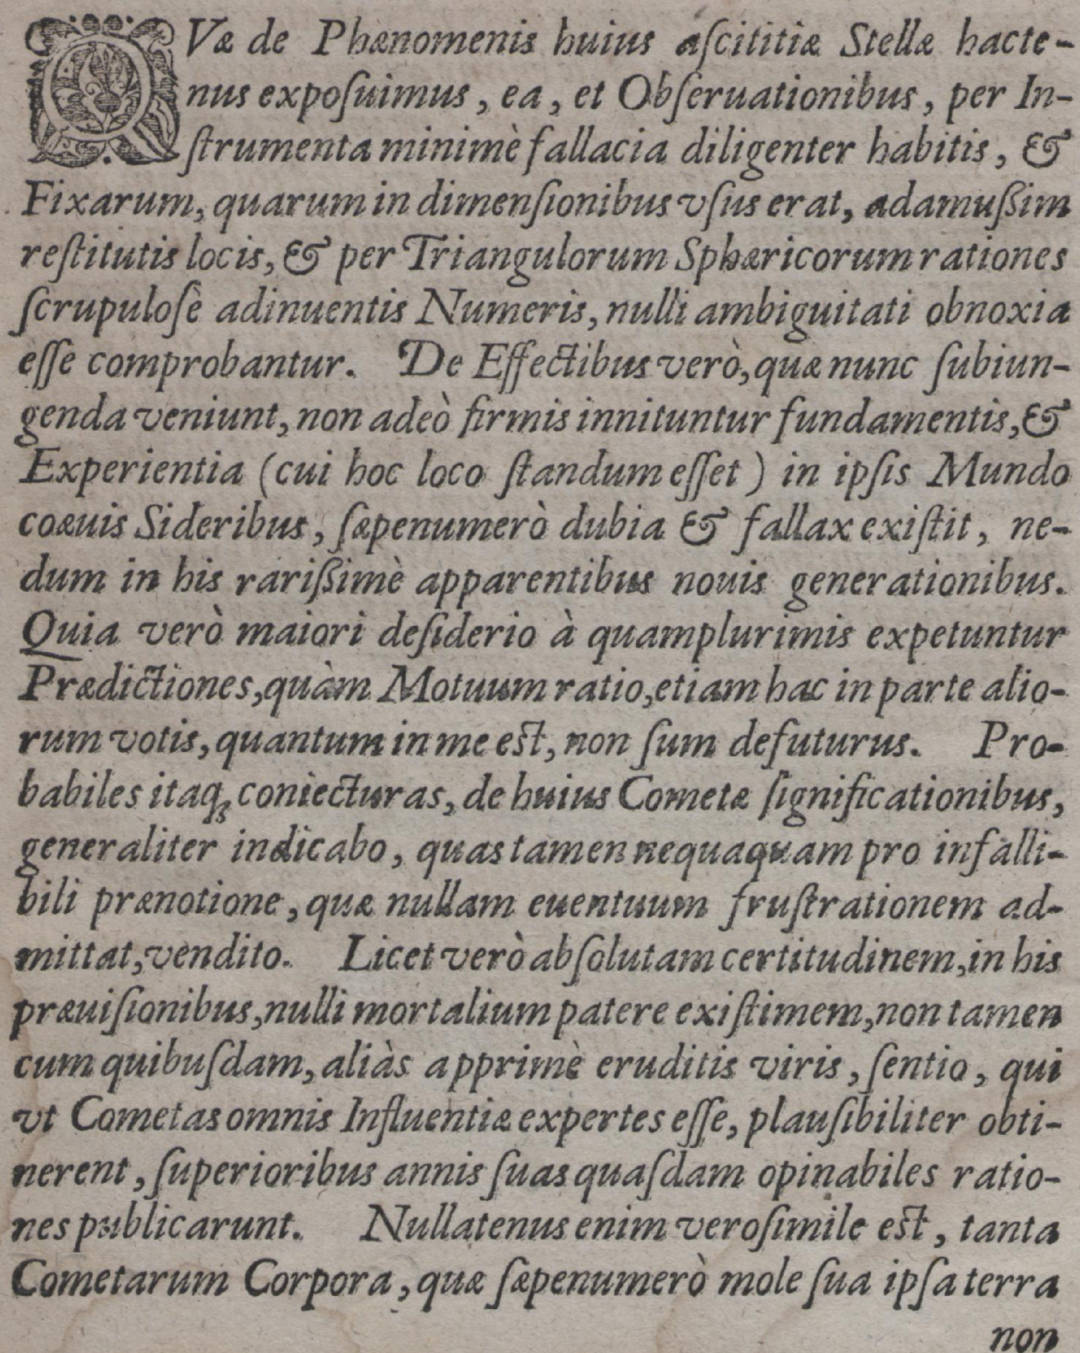 QVæ de Phænomenis huius aſcititiæ Stellæ hacte-
nus expoſuimus, ea, et Obſeruationibus, per In-
ſtrumenta minimè fallacia diligenter habitis, &
Fixarum, quarum in dimenſionibus vſus erat, adamuſſim
reſtitutis locis, & per Triangulorum Sphæricorum rationes
ſcrupuloſè adinuentis Numeris, nulli ambiguitati obnoxia
eſſe comprobantur. De Effectibus verò, quæ nunc ſubiun-
genda veniunt, non adeò firmis innituntur fundamentis, &
Experientia (cui hoc loco ſtandum eſſet) in ipſis Mundo
coæuis Sideribus, ſæpenumerò dubia & fallax exiſtit, ne-
dum in his rariſſimè apparentibus nouis generationibus.
Quia verò maiori deſiderio à quamplurimis expetuntur
Prædictiones, quàm Motuum ratio, etiam hac in parte alio-
rum votis, quantum in me est, non ſum defuturus. Pro-
babiles itaq; coniecturas, de huius Cometæ ſignificationibus,
generaliter indicabo, quas tamen nequaquam pro infalli-
bili prænotione, quæ nullam euentuum fruſtrationem ad-
mittat, vendito. Licet verò abſolutam certitudinem, in his
præuiſionibus, nulli mortalium patere exiſtimem, non tamen
cum quibuſdam, aliàs apprimè eruditis viris, ſentio, qui
vt Cometas omnis Influentiæ expertes eſſe, plauſibiliter obti-
nerent, ſuperioribus annis ſuas quaſdam opinabiles ratio-
nes publicarunt. Nullatenus enim veroſimile est, tanta
Cometarum Corpora, quæ ſæpenumerò mole ſua ipſa terra
non